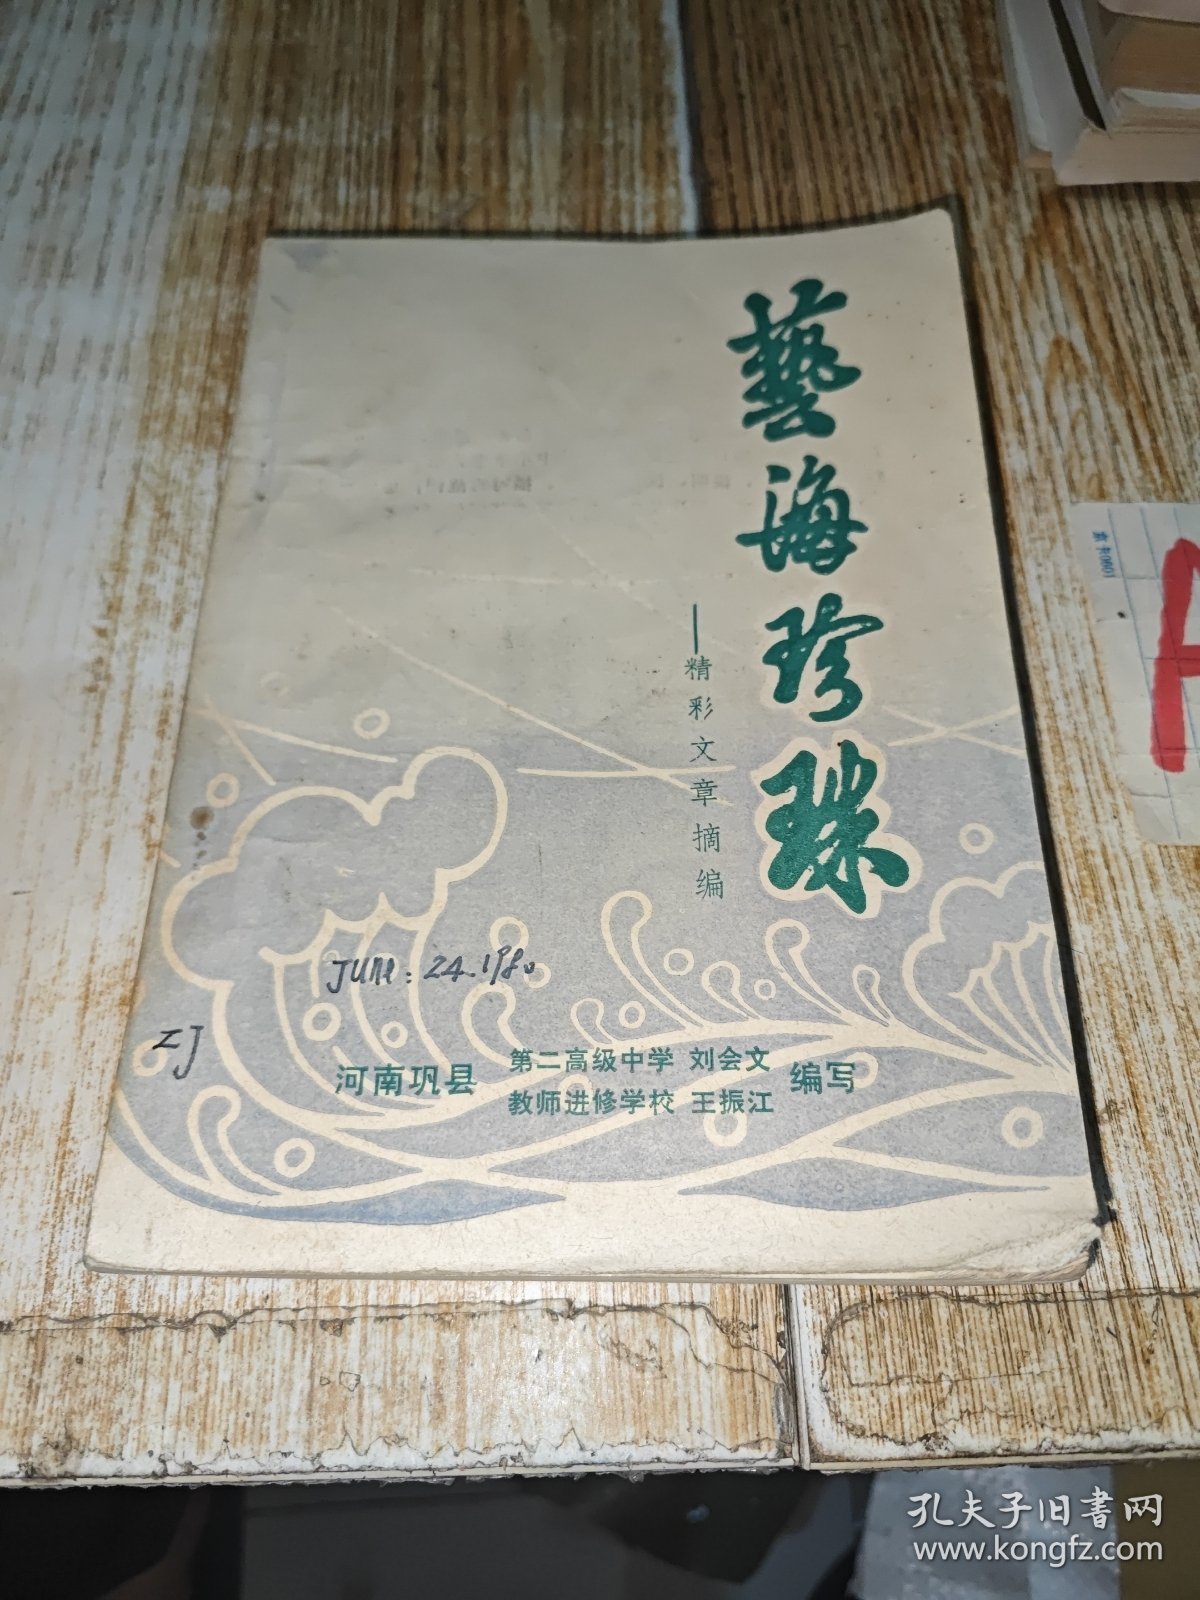 藝海珍珠
——精彩文章摘编
June: 24.1980
ZJ
河南巩县 第二高级中学 刘会文 编写
教师进修学校 王振江
京卡0601
孔夫子旧书网
www.kongfz.com